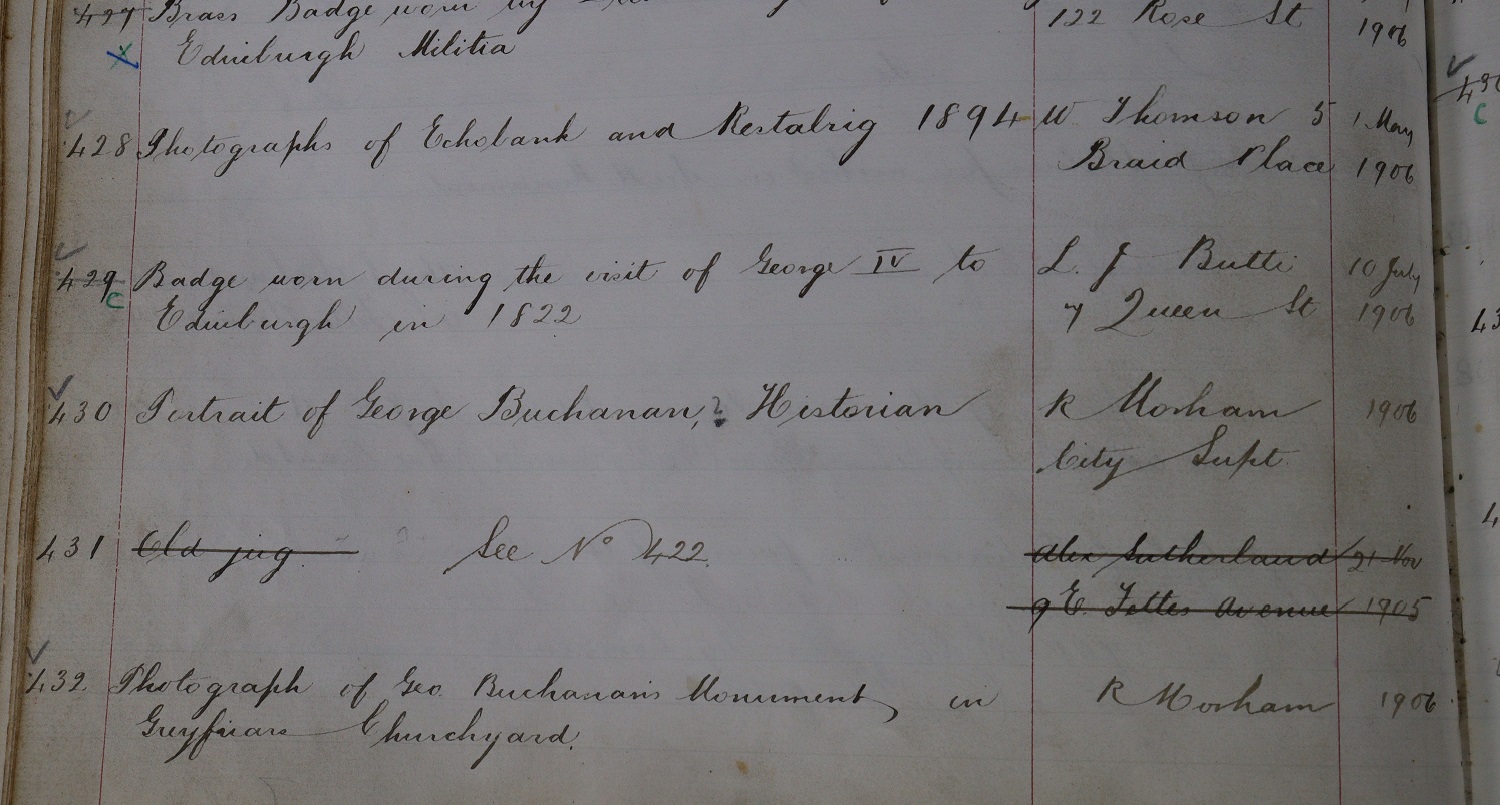 427 Brass Badge worn by
122 Rose St 1906
Edinburgh Militia
428 Photographs of Echobank and Restalrig 1894 W. Thomson 5 1 May
Braid Place 1906
429 Badge worn during the visit of George IV to L. J Butti 10 July
C
Edinburgh in 1822 7 Queen St 1906
430 Portrait of George Buchanan, ? Historian R Morham 1906
City Supt.
431 Old jug. See No 422. Alex Sutherland 21 Nov
9 E. Fettes Avenue 1905
432 Photograph of Geo. Buchanan's Monument, in R Morham 1906
Greyfriars Churchyard.
C